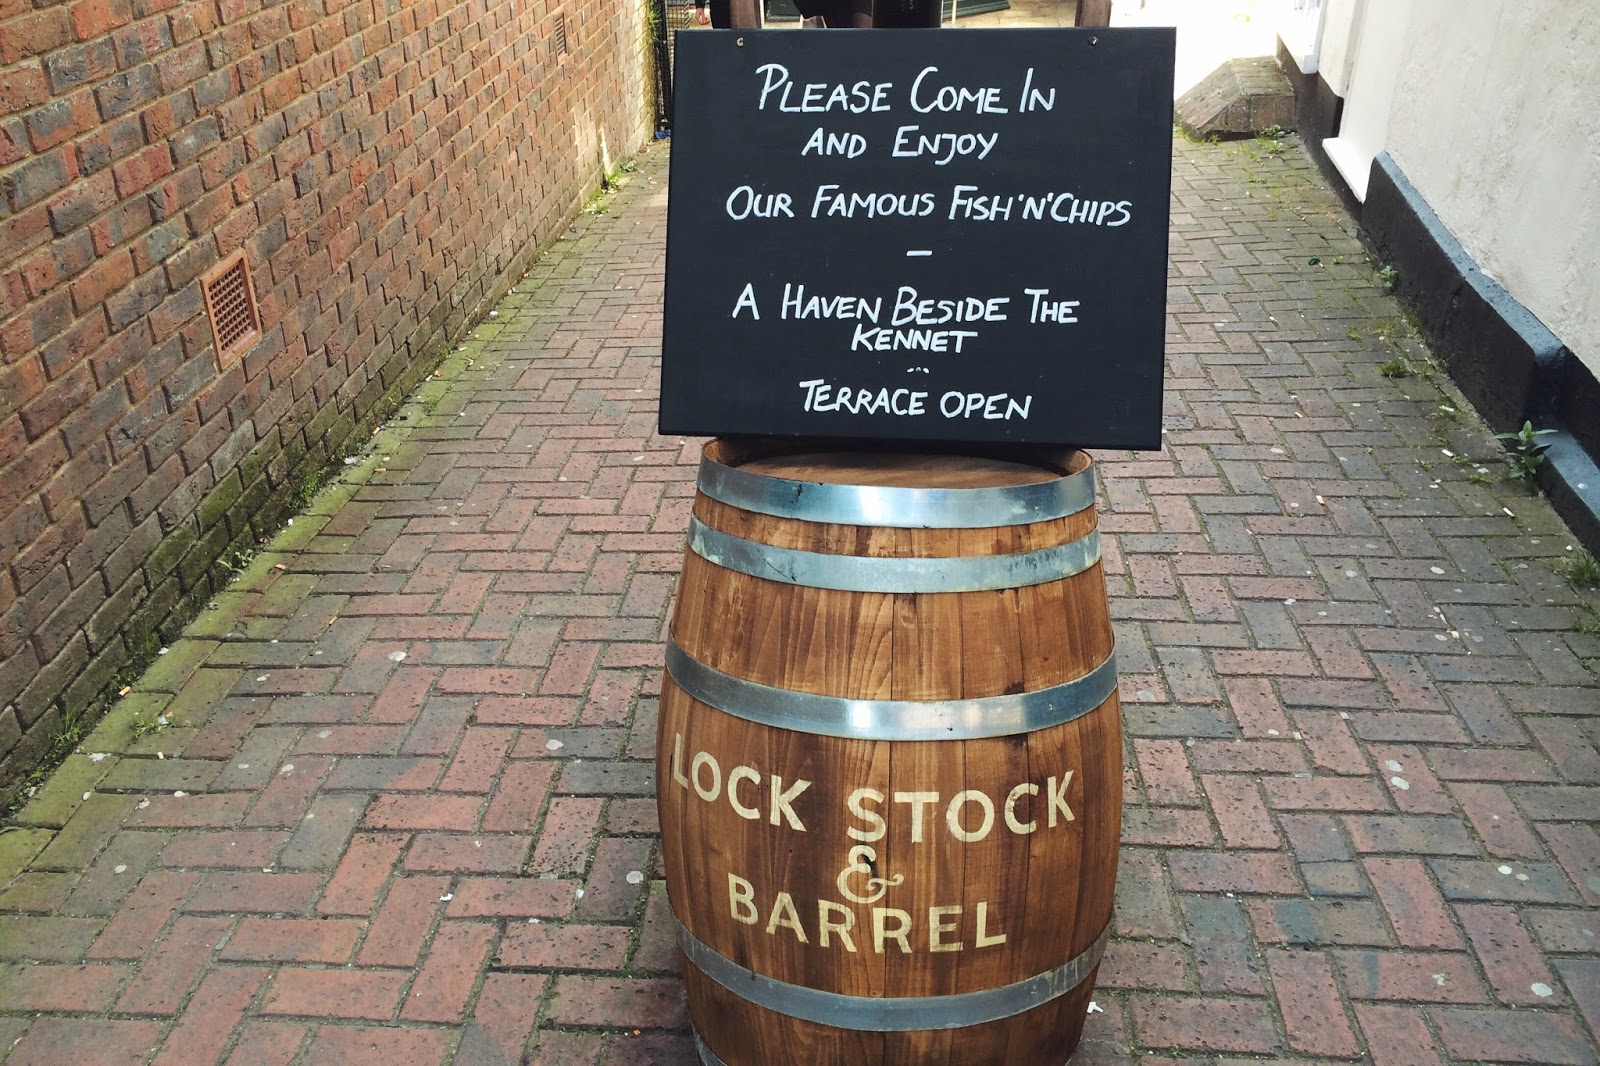 PLEASE COME IN
AND ENJOY
OUR FAMOUS FISH'N'CHIPS
–
A HAVEN BESIDE THE
KENNET
...
TERRACE OPEN
LOCK STOCK
&
BARREL